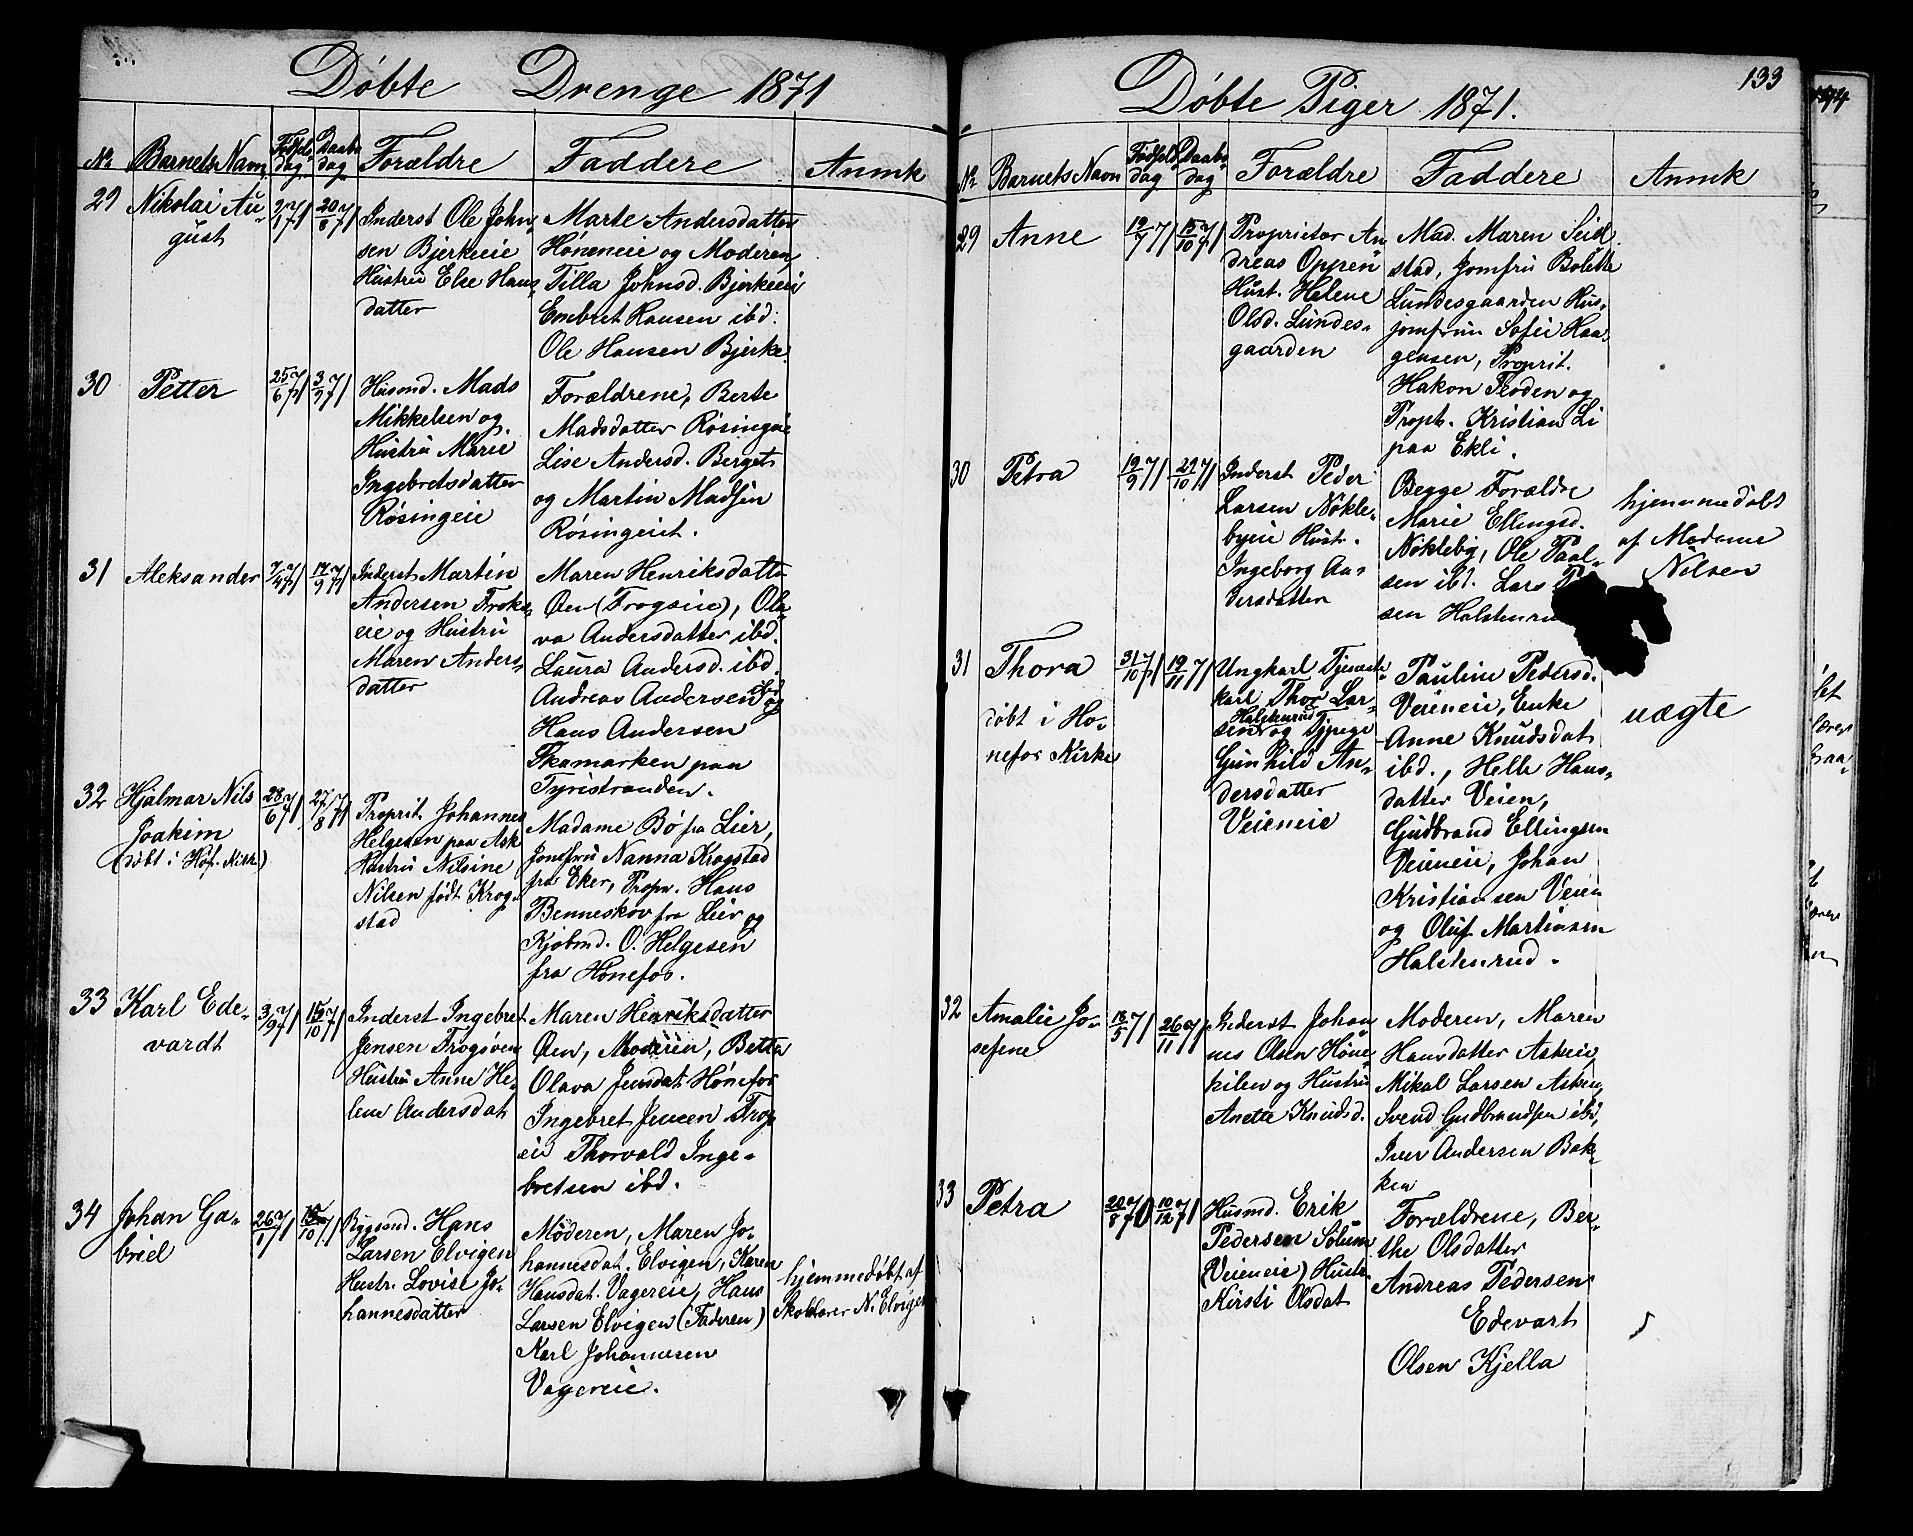 Döbte Drenge 1871
No Barnets Navn Födsels dag Daabs dag Forældre Faddere Anmk
29 Nikolai Au-
gust
2/1 71 20/8 71
Inderst Ole John
sen Bjerkeeie
Hustru Else Hans
datter
Marte Andersdatter
Höneneie og Moderen
Tilla Johnsd. Bjerkeeie
Embret Hansen ibd.
Ole Hansen Bjerke
30 Petter
25/6 71 3/9 71
Husmd. Mads
Mikkelsen og
Hustru Marie
Ingebretsdatter
Rösingeie
Forældrene, Berte
Madsdatter Rösingeie
Lise Andersd. Berget
og Martin Madsen
Rösingeiet.
31 Aleksander
7/4 71 17/9 71
Inderst Martin
Andersen Froks-
eie og Hustru
Maren Anders-
datter
Maren Henriksdatte
Öen (Frogseie), Ola-
va Andersdatter ibd.
Laura Andersd. ibd.
Andreas Andersen ibd og
Hans Andersen
Skamarken paa
Tyristranden.
32 Hjalmar Nils
Joakim
(döbt i Höf. Kirk)
28/6 71 27/8 71
Proprit. Johannes
Helgesen paa Ask
Hustru Nilsine
Nilsen födt Krog-
stad
Madame Bö fra Lier,
Jomfru Nanna Krogstad
fra Eker, Propr. Hans
Benneskov fra Lier og
Kjöbmd. O. Helgesen
fra Hönefos.
33 Karl Ede-
vardt
3/9 71 15/10 71
Inderst Ingebret
Jensen Frogsöen
Hustru Anne He-
lene Andersdat
Maren Henriksdatter
Öen, Moderen, Betta
Olava Jensdat Hönefos
Ingebret Jensen Frogs
eie Thorvald Inge-
bretsen ibd.
34 Johan Ga-
briel
26/1 71 15/10 71
Bygsmd. Hans
Larsen Elvigen
Hustr. Lovise Jo-
hannesdatter
Moderen, Maren Jo-
hannesdat. Elvigen, Karen
Hansdat. Vagereie, Hans
Larsen Elvigen (Faderen)
Karl Johannesen
Vagereie.
hjemmedöbt af
Skolelærer N. Elvigen
Döbte Piger 1871.
133
No Barnets Navn Födsels dag Daabs dag Forældre Faddere Anmk
29 Anne
12/7 71 15/10 71
Proprietær An
dreas Oppen
Hust. Helene
Olsd. Lundes-
gaarden
Mad. Maren Seid
stad, Jomfru Bolette
Lundesgaarden Hus-
jomfrue Sofie Haa-
gensen, Proprit.
Hakon Floden og
Propt. Kristian Li
paa Ekli.
30 Petra
19/9 71 29/10 71
Inderst Peder
Larsen Nökle-
byeie Hust.
Ingeborg An
dersdatter
Begge Forældre
Marie Ellingsd.
Nökleby, Ole Paal-
sen ibd. Lars
sen Halstenrud
hjemmedöbt
af Madame
Nilsen
31 Thora
döbt i Hö-
nefos Kirke
31/10 71 19/11 71
Ungkarl Tjeneste-
karl Thor Lar-
sen Halstenrud og Tjpige
Gunhild An-
dersdatter
Veieneie
Pauline Pedersd.
Veieneie, Enke
Anne Knudsdat
ibd., Helle Hans-
datter Veien,
Gudbrand Ellingsen
Veieneie, Johan
Kristiansen Veien
og Oluf Martinsen
Halstenrud.
uægte
32 Amalie Jo-
sefine
18/5 71 26/11 71
Inderst Johan
nes Olsen Höne
kilen og Hustru
Anette Knudsd.
Moderen, Maren
Hansdatter Askeie,
Mikal Larsen Asken,
Svend Gudbrandsen ibd,
Iver Andersen Bak-
ken
33 Petra
20/8 70 10/12 71
Husmd. Erik
Pedersen Solum
(Veieneie) Hustr.
Kirsti Olsdat
Forældrene, Ber-
the Olsdatter
Andreas Pedersen
Edevart
Olsen Kjella